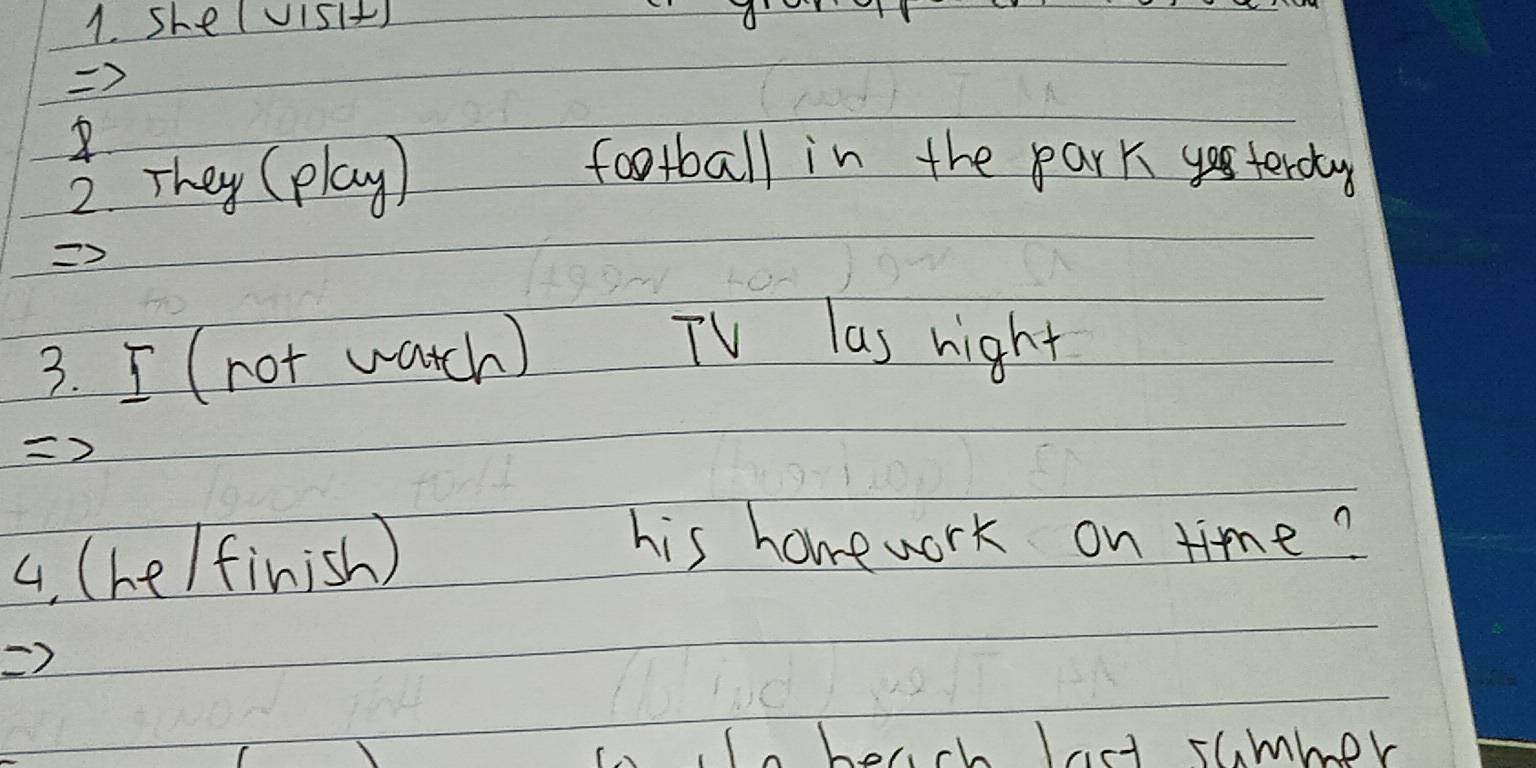 1. She (visit)
=>
2. They (play) football in the park yesterday
=>
3. I (not watch) TV las night
=>
4. (he/finish) his homework on time?
=>
beach last summer